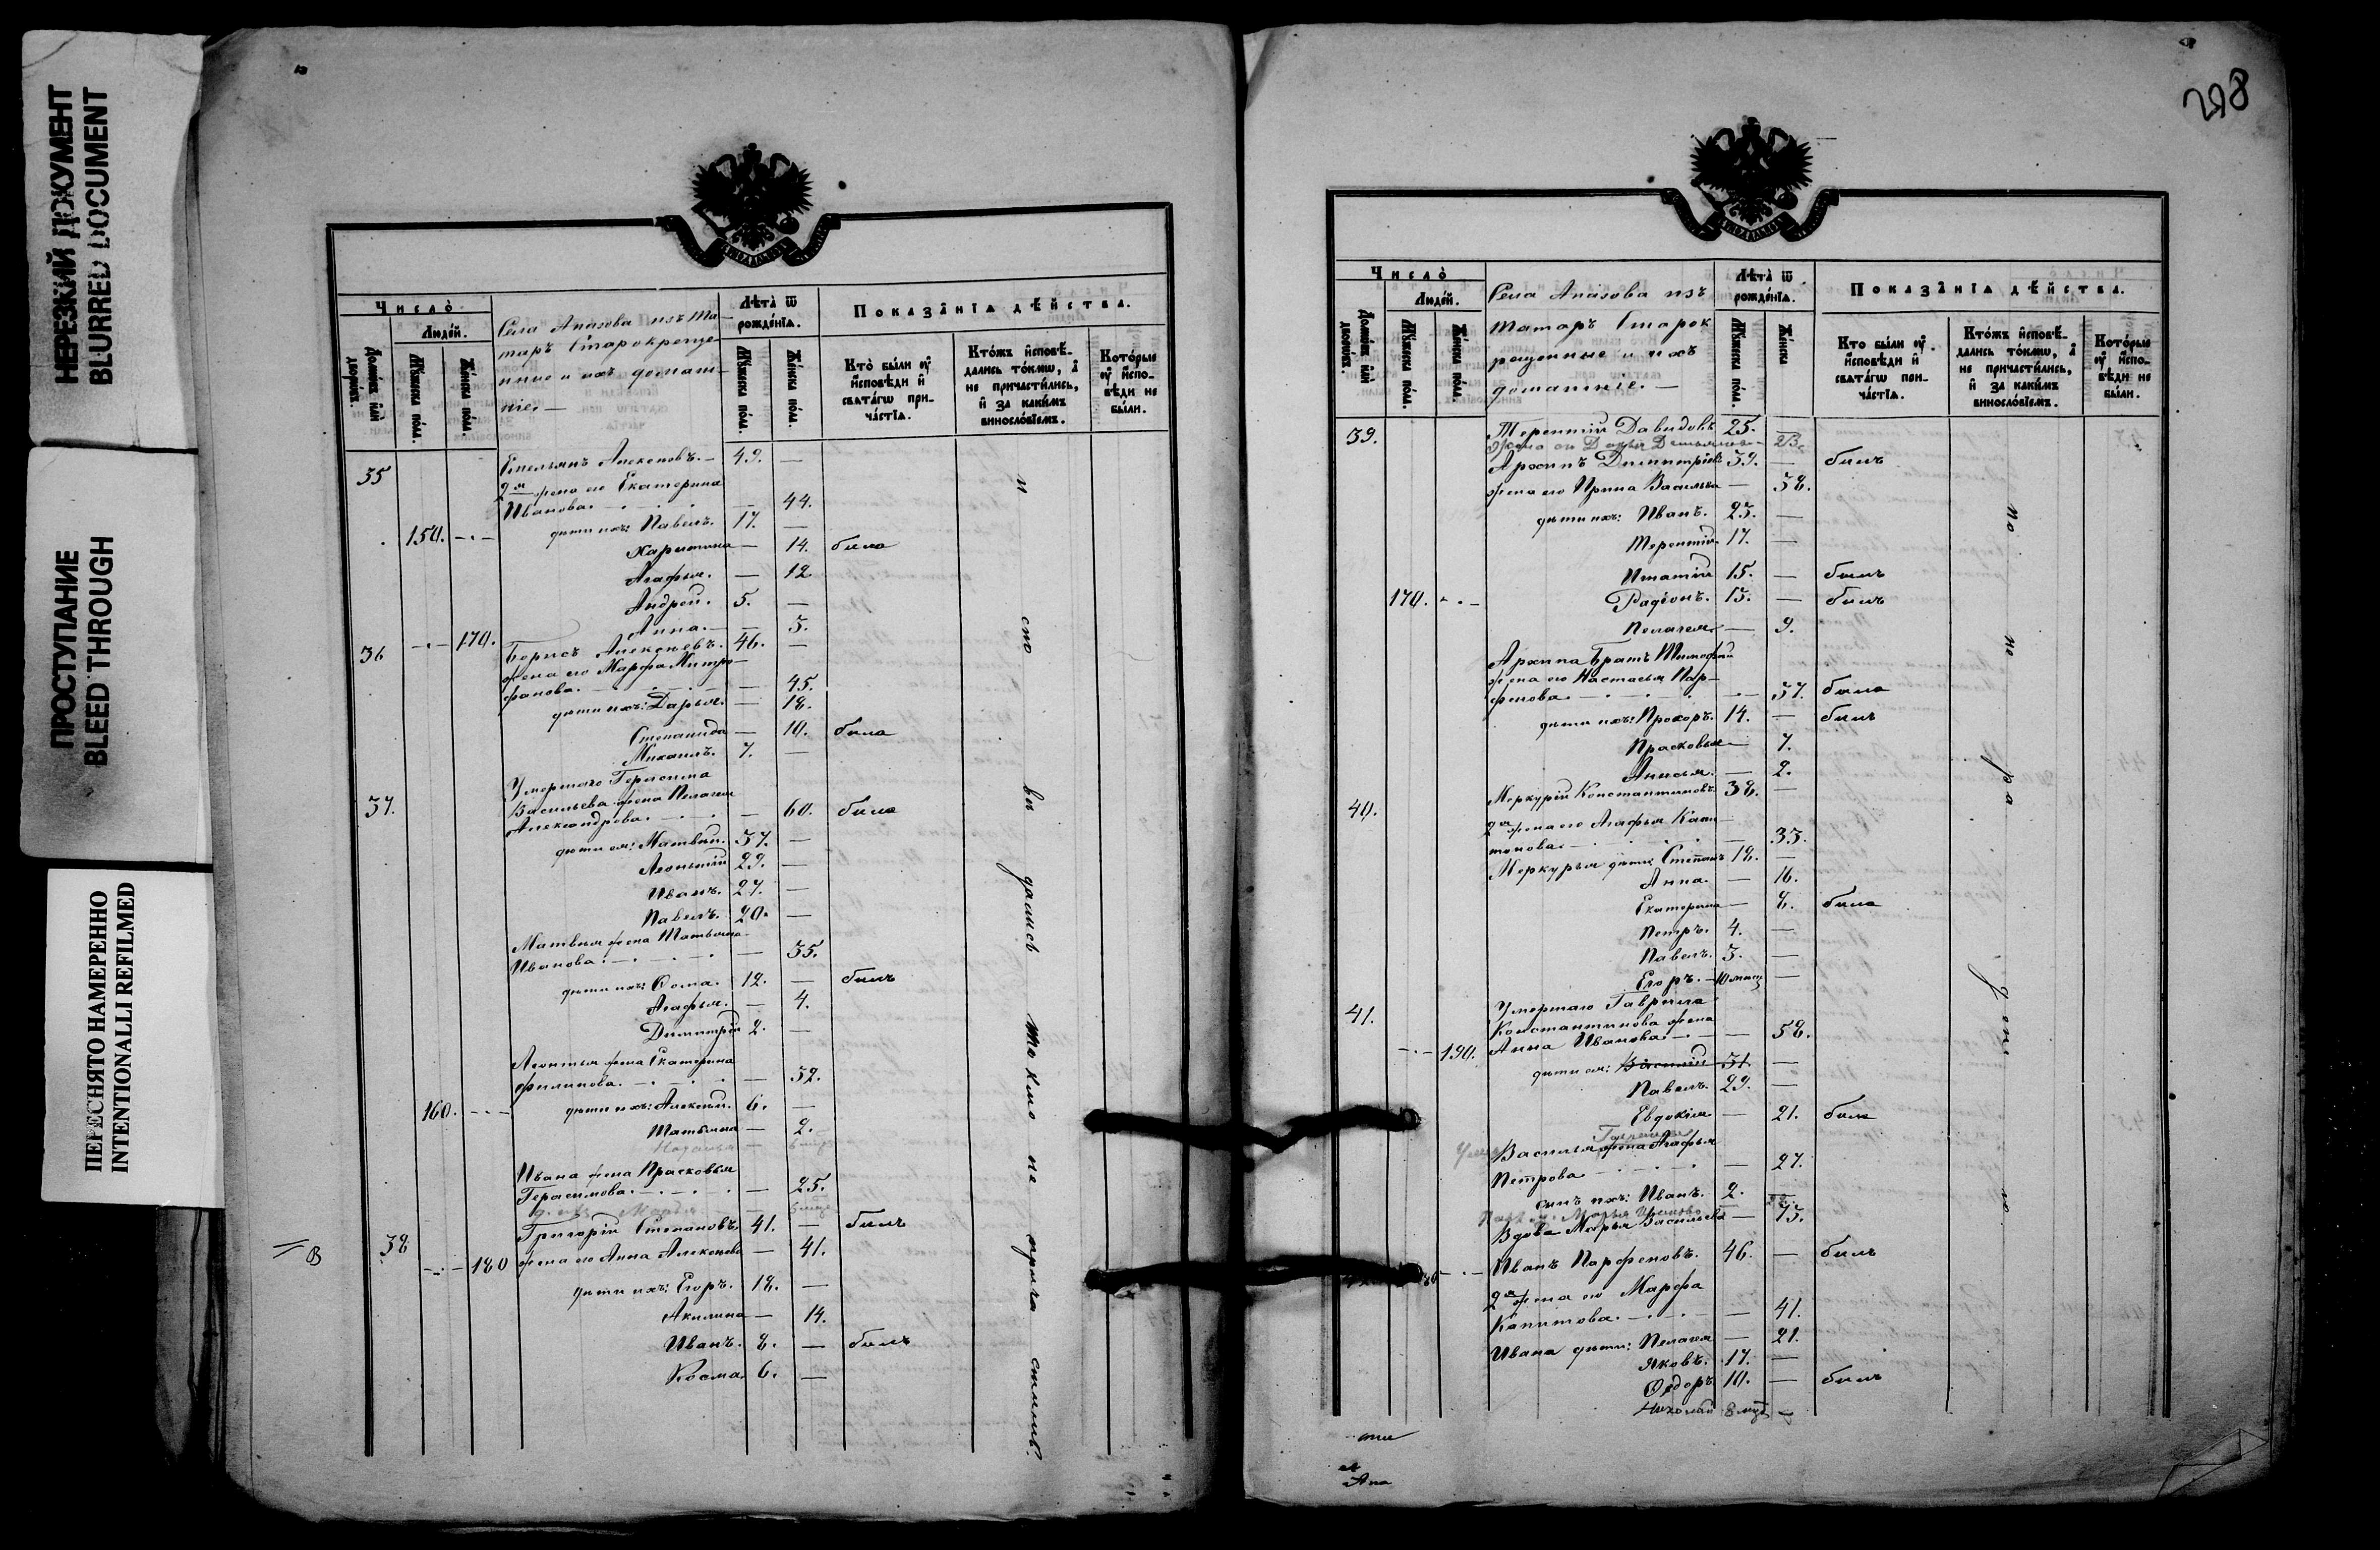 НЕРЕЗКИЙ ДОКУМЕНТ
BLURRED DOCUMENT
ПРОСТУПАНИЕ
BLEED THROUGH
ПЕРЕСНЯТО НАМЕРЕННО
INTENTIONALLI REFILMED
Число̀
Людéй.
Домѡ́въ и҆лѝ дворѡ́въ.
Мꙋ́жеска по́ла.
Жéнска по́ла.
Села Апазова изъ Та-
таръ Старокреще-
нные и ихъ домаш-
ніе. —
Лѣта̀ ѿ рождéнїѧ.
Мꙋ́жеска по́ла.
Жéнска по́ла.
Показа́нїѧ дѣ́йства.
Кто̀ бы́ли ᲂу҆ и҆́споведи и҆ свѧта́гѡ при-ча́стїѧ.
Кто́жъ и҆сповѣ́-дались то́кмѡ, а҆ не причасти́лись, и҆ за каки́мъ винослóвїемъ.
Кото́рые ᲂу҆ и҆́спо-вѣди не бы́ли.
35 Емельянъ Алексѣевъ. — 49. —
2я жена его Екатерина
Иванова. — 44.
150. дѣти ихъ: Павелъ. 17. —
Харитина — 14. была
Агафья. — 12
Андрей. 5. —
Анна. — 3.
36 170. Борисъ Алексѣевъ. 46. —
жена его Марфа Митро-
фанова. — 45.
дѣти ихъ: Дарья. — 18.
Степанида — 10. была
Михаилъ. 7. —
37. Умершаго Герасима
Васильева жена Пелагея
Александрова. — 60. была
дѣти ея: Матвѣй. 37. —
Леонтій 29. —
Иванъ. 27. —
Павелъ. 20. —
Матвѣя жена Татьяна
Иванова. — 35.
дѣти ихъ: Ѳома. 12. — былъ
Агафья. — 4.
Димитрій 2. —
Леонтья жена Екатерина
Филипова. — 32.
160. дѣти ихъ: Алексѣй. 6. —
Татьяна — 2.
Ивана жена Прасковья
Герасимова. — 25.
38 Григорій Степановъ. 41. — былъ
180 жена его Анна Алексѣева — 41.
дѣти ихъ: Егоръ. 18. —
Акилина — 14.
Иванъ. 8. — былъ
Косма. 6. —
исповѣдались токмо не причастились.
298
Число̀
Людéй.
Домѡ́въ и҆лѝ дворѡ́въ.
Мꙋ́жеска по́ла.
Жéнска по́ла.
Села Апазова изъ
татаръ Старок
рещенные и ихъ
домашніе. —
Лѣта̀ ѿ рождéнїѧ.
Мꙋ́жеска по́ла.
Жéнска
Показа́нїѧ дѣ́йства.
Кто бы́ли ᲂу҆ и҆́споведи и҆ свѧта́гѡ при-ча́стїѧ.
Кто́жъ и҆сповѣ́-дались то́кмѡ, а҆ не причасти́лись, и҆ за каки́мъ винослóвїемъ.
Кото́рые ᲂу҆ и҆́спо-вѣди не бы́ли.
39. Терентій Давидовъ 25.
Жена его Дарья 23.
Архипъ Димитріевъ 39. — былъ
жена его Ирина Васильева — 38.
дѣти ихъ: Иванъ. 23. —
Терентій 17. —
Игнатій 15. — былъ
170. Радіонъ. 13. — былъ
Пелагея — 9.
Архипа братъ Тимофей
жена его Настасья Пар-
фенова. — 37. была
дѣти ихъ: Прохоръ. 14. — былъ
Прасковья — 7.
Анисья. — 2.
40. Меркурій Константиновъ. 38. —
2я жена его Агафья Капи-
тонова. — 33.
Меркурья дѣти: Степанъ 18. —
Анна. — 16.
Екатерина — 8. была
Петръ. 4. —
Павелъ. 3. —
Егоръ. — 10 мѣсяц —
41. Умершаго Гаврила
Константинова жена
190. Анна Иванова. — 58.
дѣти ея: Василій 31. —
Павелъ. 29. —
Евдокія — 21. была
Василья жена Агафья
Петрова — 27.
сынъ ихъ: Иванъ. 2.
Вдова Марья Васильева — 73.
Иванъ Парфеновъ. 46. — былъ
2я жена его Марфа
Капитова. — 41.
Ивана дѣти: Пелагея — 21.
Яковъ. 17. —
Ѳедоръ 10. — былъ
Николай 8 мѣс —